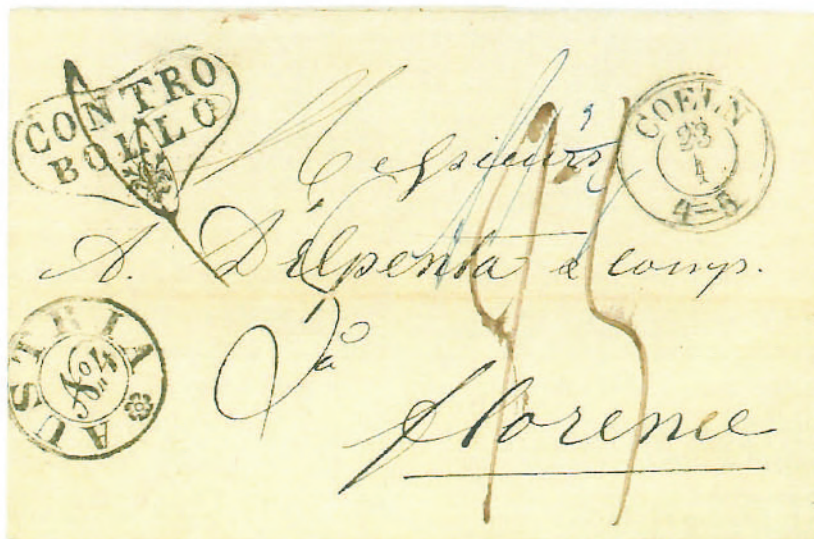 CONTRO
BOLLO
COELN
23
1
4-5
Messieurs
A. Dalpenta & comp.
à
Florence
AUSTRIA